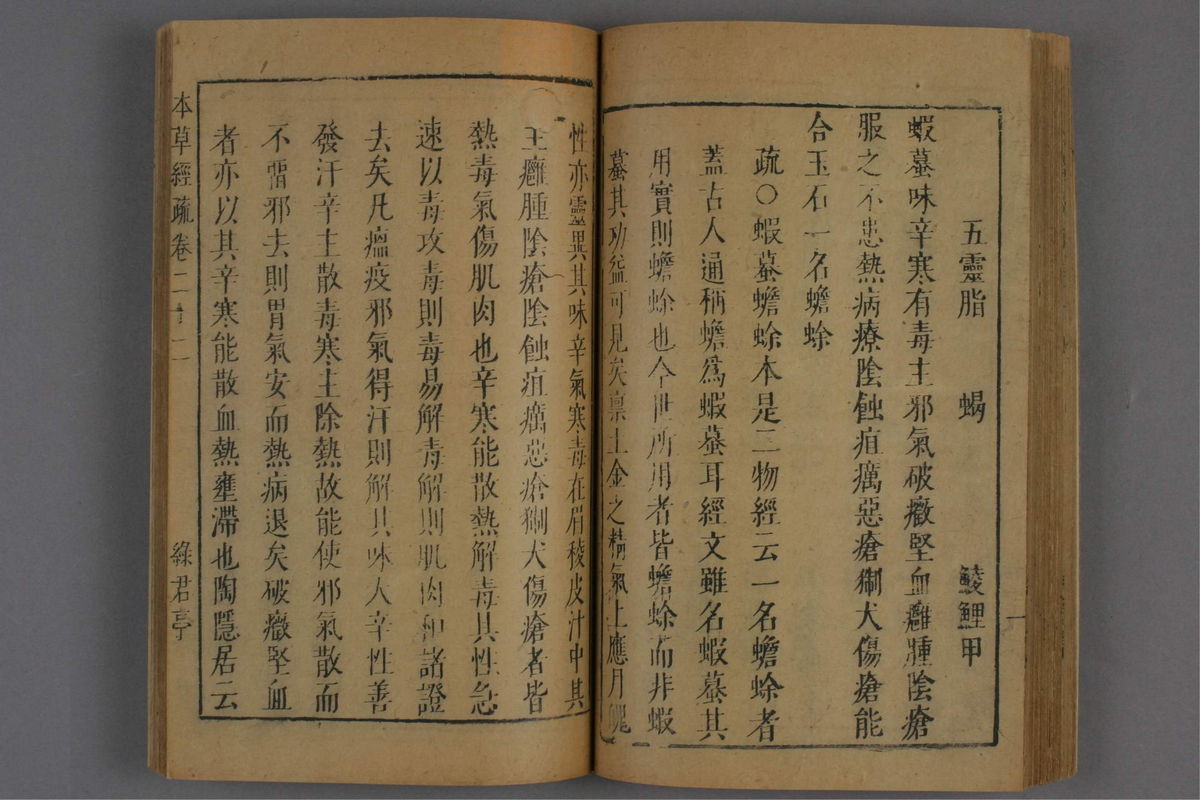 五靈脂 蝎 鯪鯉甲
蝦蟇味辛寒有毒主邪氣破癥堅血癰腫陰瘡
服之不患熱病療陰蝕疽癘惡瘡猘犬傷瘡能
合玉石一名蟾蜍
疏○蝦蟇蟾蜍本是二物經云一名蟾蜍者
蓋古人通稱蟾爲蝦蟇耳經文雖名蝦蟇其
用實則蟾蜍也今世所用者皆蟾蜍而非蝦
蟇其功益可見矣稟土金之精氣上應月魄
性亦靈異其味辛氣寒毒在眉稜皮汁中其
主癰腫陰瘡陰蝕疽癘惡瘡猘犬傷瘡者皆
熱毒氣傷肌肉也辛寒能散熱解毒其性急
速以毒攻毒則毒易解毒解則肌肉和諸證
去矣凡瘟疫邪氣得汗則解其味大辛性善
發汗辛主散毒寒主除熱故能使邪氣散而
不留邪去則胃氣安而熱病退矣破癥堅血
者亦以其辛寒能散血熱壅滯也陶隱居云
本草經疏卷二十二 綠君亭